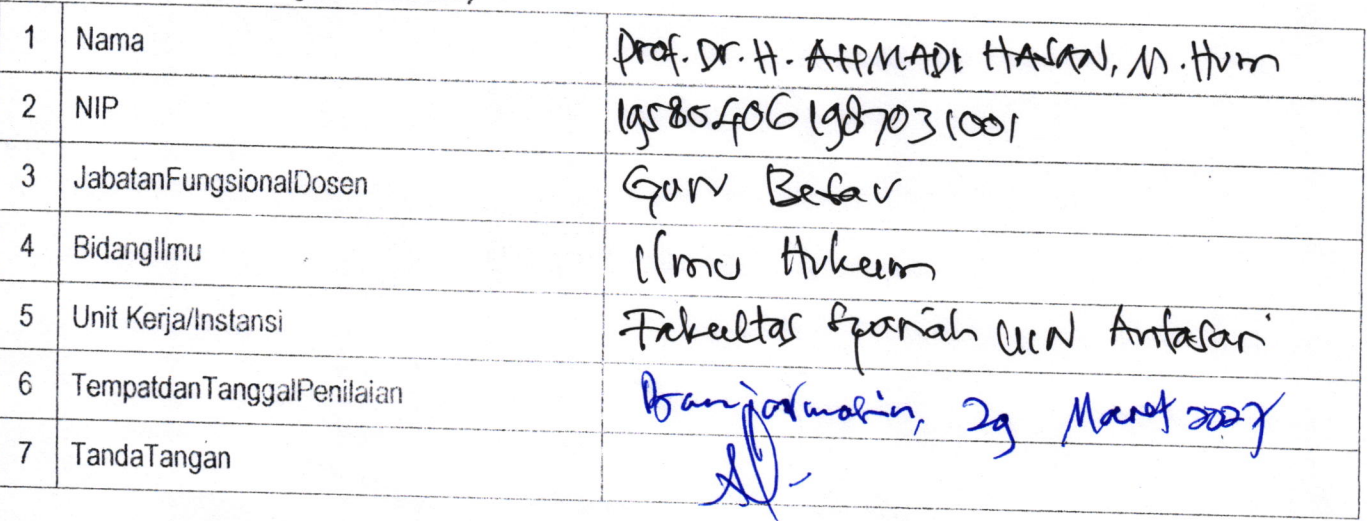 1 Nama Prof. Dr. H. AHMADI HASAN, M. Hum
2 NIP 195805061987031001
3 JabatanFungsionalDosen Guru Besar
4 BidangIlmu Ilmu Hukum
5 Unit Kerja/Instansi Fakultas Syariah UIN Antasari
6 TempatdanTanggalPenilaian Banjarmasin, 29 Maret
7 TandaTangan